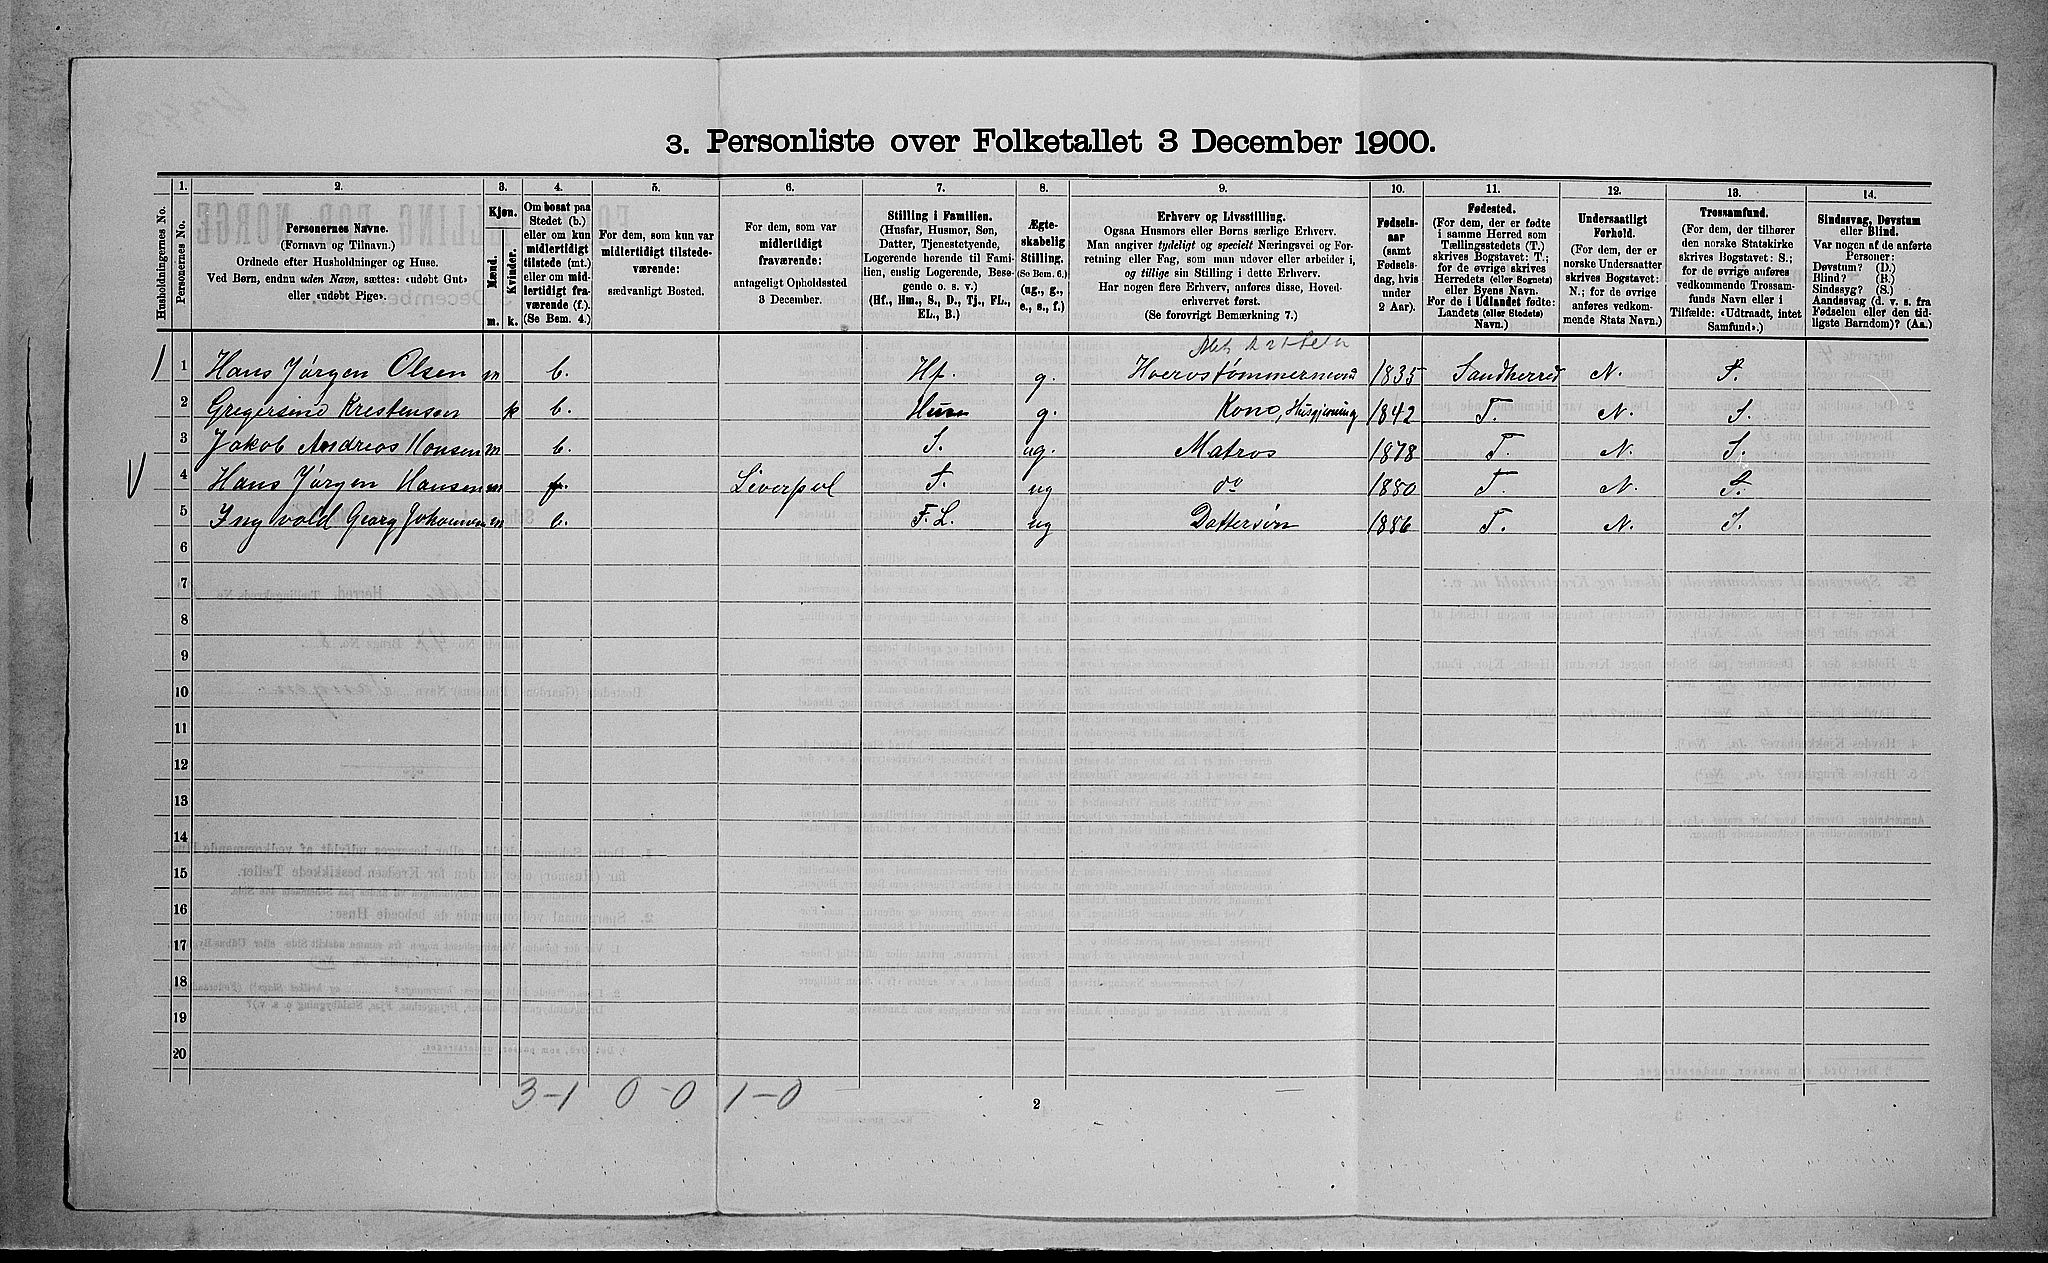 3. Personliste over Folketallet 3 December 1900.
1. 2. 3. 4. 5. 6. 7. 8. 9. 10. 11. 12. 13. 14.
Husholdningernes No.
Personernes No.
Personernes Navne.
(Fornavn og Tilnavn.)
Ordnede efter Husholdninger og Huse.
Ved Børn, endnu uden Navn, sættes: «udøbt Gut»
eller «udøbt Pige».
Kjøn.
Mænd.
Kvinder.
m. k.
Om bosat paa
Stedet (b.)
eller om kun
midlertidigt
tilstede (mt.)
eller om mid-
lertidigt fra-
værende (f.)
(Se Bem. 4.)
For dem, som kun var
midlertidigt tilstede-
værende:
sædvanligt Bosted.
For dem, som var
midlertidigt
fraværende:
antageligt Opholdssted
3 December.
Stilling i Familien.
(Husfar, Husmor, Søn,
Datter, Tjenestetyende,
Logerende hørende til Fami-
lien, enslig Logerende, Besø-
gende o. s. v.)
(Hf., Hm., S., D., Tj., FL.,
EL., B.)
Ægte-
skabelig
Stilling.
(Se Bem. 6.)
(ug., g.,
e., s., f.)
Erhverv og Livsstilling.
Ogsaa Husmors eller Børns særlige Erhverv.
Man angiver tydeligt og specielt Næringsvei og For-
retning eller Fag, som man udøver eller arbeider i,
og tillige sin Stilling i dette Erhverv.
Har nogen flere Erhverv, anføres disse, Hoved-
erhvervet først.
(Se forøvrigt Bemærkning 7.)
Fødsels-
aar
(samt
Fødsels-
dag, hvis
under
2 Aar).
Fødested.
(For dem, der er fødte
i samme Herred som
Tællingsstedets (T.)
skrives Bogstavet: T.;
for de øvrige skrives
Herredets (eller Sognets)
eller Byens Navn.
For de i Udlandet fødte:
Landets (eller Stedets)
Navn.)
Undersaatligt
Forhold.
(For dem, der er
norske Undersaatter
skrives Bogstavet:
N.; for de øvrige
anføres vedkom-
mende Stats Navn.)
Trossamfund.
(For dem, der tilhører
den norske Statskirke
skrives Bogstavet: S.;
for de øvrige anføres
vedkommende Trossam-
funds Navn eller i
Tilfælde: «Udtraadt, intet
Samfund».)
Sindssvag, Døvstum
eller Blind.
Var nogen af de anførte
Personer:
Døvstum? (D.)
Blind? (B.)
Sindssyg? (S.)
Aandssvag (d. v. s. fra
Fødselen eller den tid-
ligste Barndom)? (Aa.)
1 1 Hans Jørgen Olsen m b. Hf. g. Hverostømmermand 1835 Sandherred N. S.
2 Gregersine Kristensen k b. Hm g. Kone, Husgjerning 1842 T. N. S.
3 Jakob Andreas Hansen m b. S. ug. Matros 1878 T. N. S.
V 4 Hans Jørgen Hansen m f. Liverpol S. ug do 1880 T. N. S.
5 Ingvald Georg Johannesen m b. F. L. ug Dattersøn 1886 T. N. S.
6
7
8
9
10
11
12
13
14
15
16
17
18
19
20
3-1 0-0 1-0
2